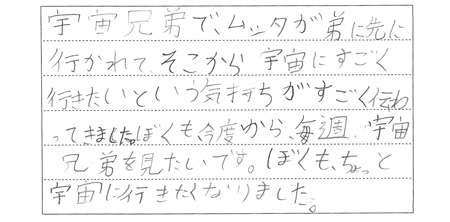 宇宙兄弟で、ムッタが弟に先に
行かれて、そこから宇宙にすごく
行きたいという気持ちがすごく伝わ
ってきました。ぼくも、今度から、毎週、宇宙
兄弟を見たいです。ぼくも、ちょっと
宇宙に行きたくなりました。